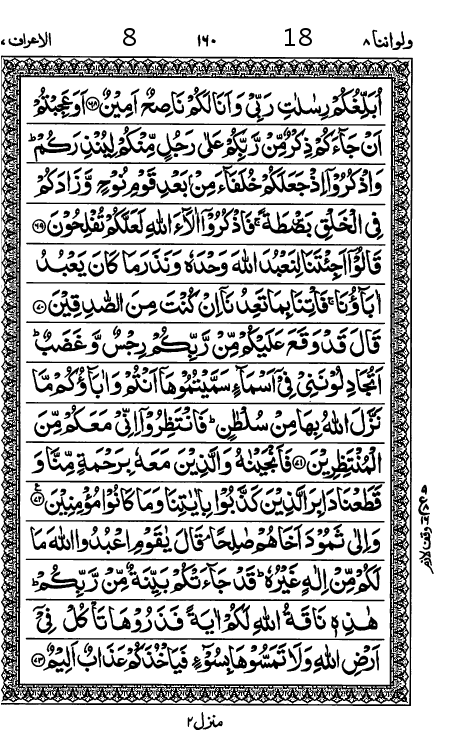 ولواننا ٨ 18 ١٦٠ 8 الاعراف ٧
اُبَلِّغُكُمْ رِسٰلٰتِ رَبِّیْ وَاَنَا لَكُمْ نَاصِحٌ اَمِیْنٌ ﴿۶۸﴾ اَوَعَجِبْتُمْ
اَنْ جَآءَكُمْ ذِكْرٌ مِّنْ رَّبِّكُمْ عَلٰی رَجُلٍ مِّنْكُمْ لِیُنْذِرَكُمْ ؕ
وَاذْكُرُوْۤا اِذْ جَعَلَكُمْ خُلَفَآءَ مِنْۢ بَعْدِ قَوْمِ نُوْحٍ وَّزَادَكُمْ
فِی الْخَلْقِ بَصْۜطَةً ۚ فَاذْكُرُوْۤا اٰلَآءَ اللّٰهِ لَعَلَّكُمْ تُفْلِحُوْنَ ﴿۶۹﴾
قَالُوْۤا اَجِئْتَنَا لِنَعْبُدَ اللّٰهَ وَحْدَهٗ وَنَذَرَ مَا كَانَ یَعْبُدُ
اٰبَآؤُنَا ۚ فَاْتِنَا بِمَا تَعِدُنَاۤ اِنْ كُنْتَ مِنَ الصّٰدِقِیْنَ ﴿۷۰﴾
قَالَ قَدْ وَقَعَ عَلَیْكُمْ مِّنْ رَّبِّكُمْ رِجْسٌ وَّغَضَبٌ ؕ
اَتُجَادِلُوْنَنِیْ فِیْۤ اَسْمَآءٍ سَمَّیْتُمُوْهَاۤ اَنْتُمْ وَاٰبَآؤُكُمْ مَّا
نَزَّلَ اللّٰهُ بِهَا مِنْ سُلْطٰنٍ ؕ فَانْتَظِرُوْۤا اِنِّیْ مَعَكُمْ مِّنَ
الْمُنْتَظِرِیْنَ ﴿۷۱﴾ فَاَنْجَیْنٰهُ وَالَّذِیْنَ مَعَهٗ بِرَحْمَةٍ مِّنَّا وَ
قَطَعْنَا دَابِرَ الَّذِیْنَ كَذَّبُوْا بِاٰیٰتِنَا وَمَا كَانُوْا مُؤْمِنِیْنَ ﴿۷۲﴾ ع
وَاِلٰی ثَمُوْدَ اَخَاهُمْ صٰلِحًا ۘ قَالَ یٰقَوْمِ اعْبُدُوا اللّٰهَ مَا
لَكُمْ مِّنْ اِلٰهٍ غَیْرُهٗ ؕ قَدْ جَآءَتْكُمْ بَیِّنَةٌ مِّنْ رَّبِّكُمْ ؕ
هٰذِهٖ نَاقَةُ اللّٰهِ لَكُمْ اٰیَةً فَذَرُوْهَا تَاْكُلْ فِیْۤ
اَرْضِ اللّٰهِ وَلَا تَمَسُّوْهَا بِسُوْٓءٍ فَیَاْخُذَكُمْ عَذَابٌ اَلِیْمٌ ﴿۷۳﴾
وقف لازم
منزل ٢